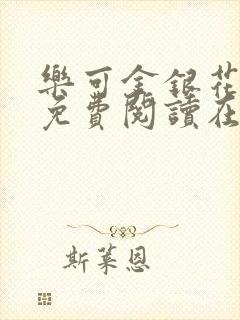 樂可金銀花
免費閱讀在
斯萊恩